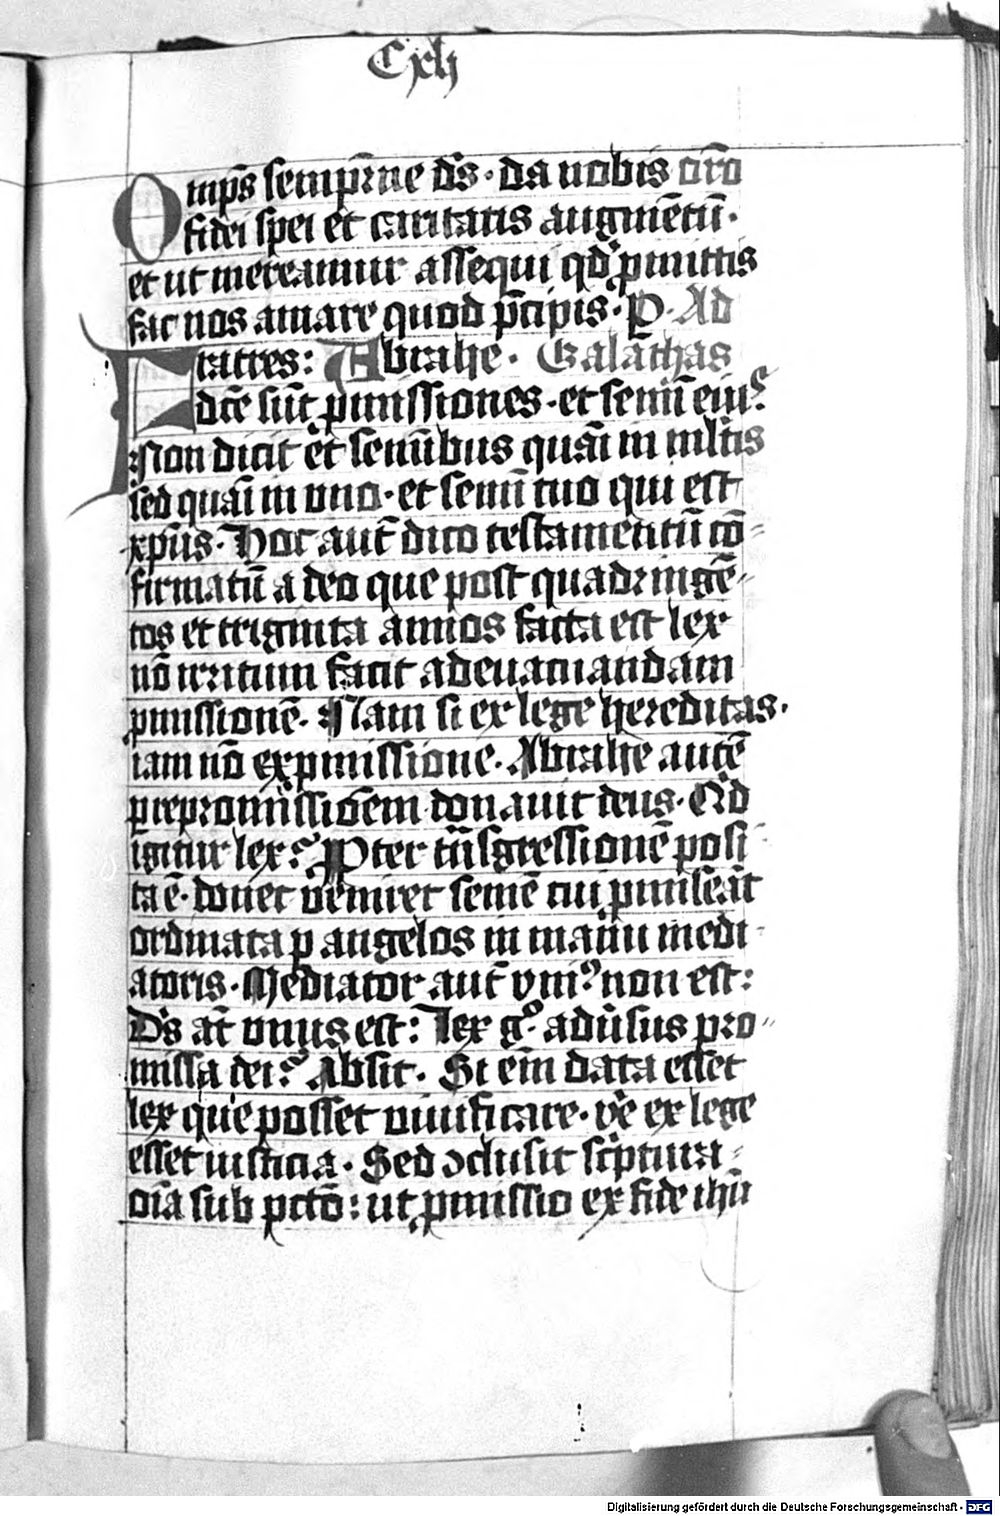 Cxlj
Omp̄s semp̄rne ds̄ · da nobis oro͞
fidei spei et caritatis augmētū ·
et ut mereamur assequi qd̓ ꝓmittis
fac nos amare quod p̄cipis · P · Ad
Fratres : Abrahe · Galathas
dc̄e sūt ꝓmissiones · et semī eiuꝰ
Non dicit et seminībus quāi in ml̓tis
sed quāi in uno · et semī tuo qui est
xp̄us · Hoc aut̄ dico testamentū cō⸗
firmatū a deo que post quadringē⸗
tos et triginta annos facta est lex
nō irritum facit ad euacuandam
ꝓmissionē · Nam si ex lege hereditas ·
iam nō ex ꝓmissione · Abrahe autē
prepromissiōem donauit deus · Qd̓
igitur lexꝰ Pter tn̄sgressionē posi
ta ē · donec veniret semē cui ꝓmiseāt
ordinata ꝑ angelos in manu medi⸗
atoris · Mediator aut̄ vniꝰ non est :
Ds̄ at̄ unus est : Lex gͦ adūsus pro⸗
missa dei ? Absit · Si em̄ data esset
lex que posset viuificare · ve͞ ex lege
esset iusticia · Sed ↄclusit sc͛ptura⸗
oīa sub pctō : ut ꝓmissio ex fide ihū
Digitalisierung gefördert durch die Deutsche Forschungsgemeinschaft - DFG